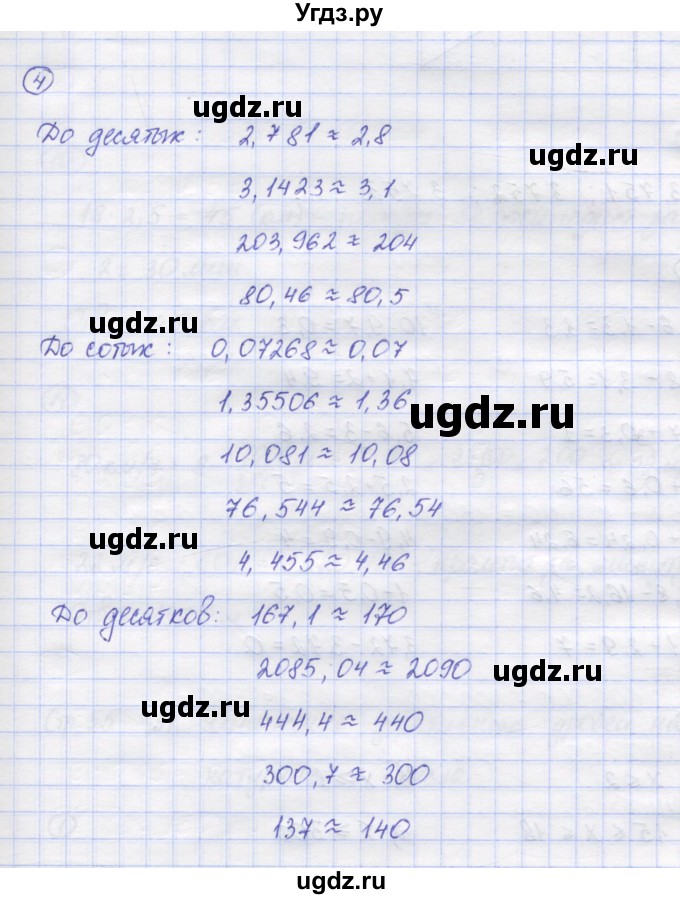 Угдз.ру
4
ugdz.ru
До десятых: 2,781 ≈ 2,8
ugdz.ru
3,1423 ≈ 3,1
203,962 ≈ 204
80,46 ≈ 80,5
ugdz.ru
До сотых: 0,07268 ≈ 0,07
1,35506 ≈ 1,36
ugdz.ru
10,081 ≈ 10,08
76,544 ≈ 76,54
ugdz.ru
4,455 ≈ 4,46
До десятков: 167,1 ≈ 170
2085,04 ≈ 2090
ugdz.ru
ugdz.ru
444,4 ≈ 440
300,7 ≈ 300
137 ≈ 140
ugdz.ru